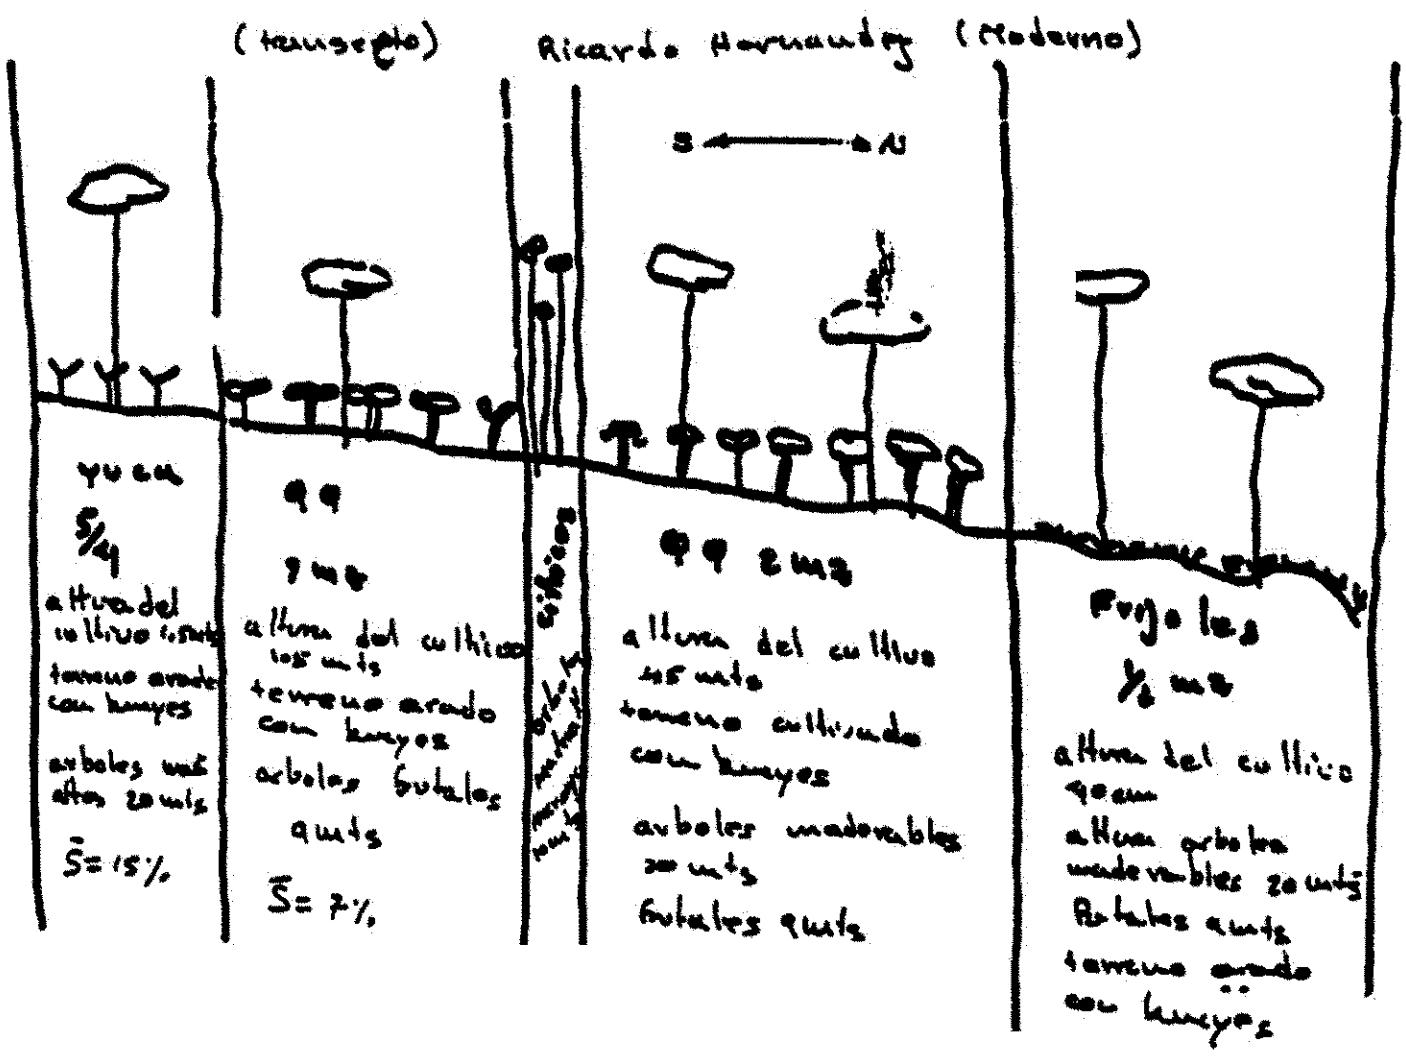 (transepto) Ricardo Hernandez (Moderno)
S N
yuca
5/4
altura del
cultivo 1.5mts
terreno arado
con bueyes
arboles mas
altos 20 mts
S̄= 15%
QQ
mz
altura del cultivo
mts
terreno arado
con bueyes
arboles frutales
9 mts
S̄= 7%
citricos
QQ 2 mz
altura del cultivo
mts
terreno cultivado
con bueyes
arboles maderables
20 mts
frutales 9 mts
Frijoles
1/2 mz
altura del cultivo
90 cm
altura arboles
maderables 20 mts
frutales 9 mts
terreno arado
con bueyes